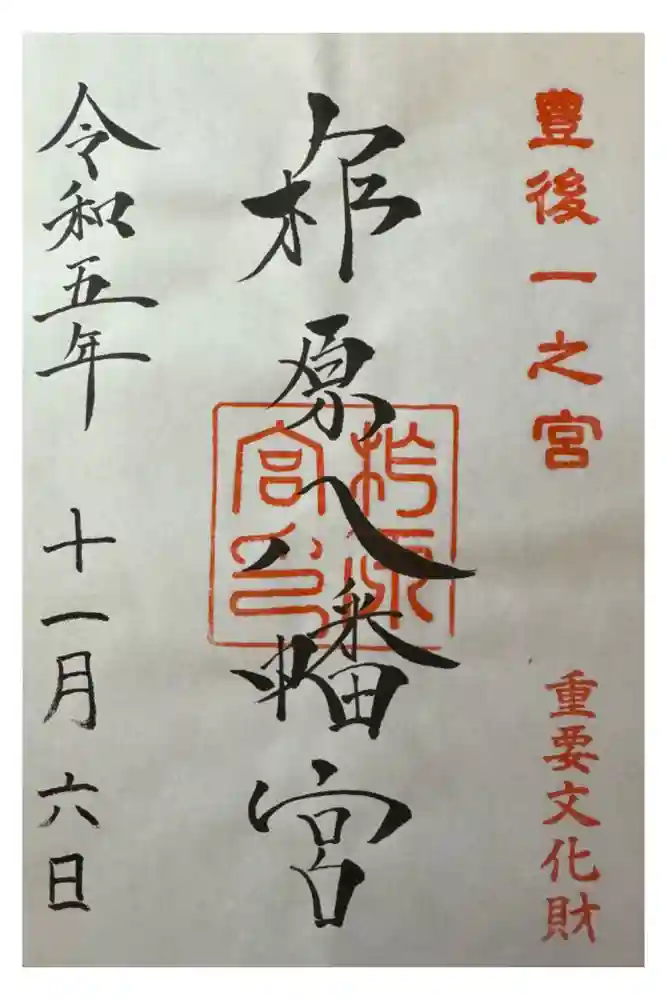 豊後一之宮
重要文化財
柞原八幡宮
柞原
宮印
令和五年 十一月 六日